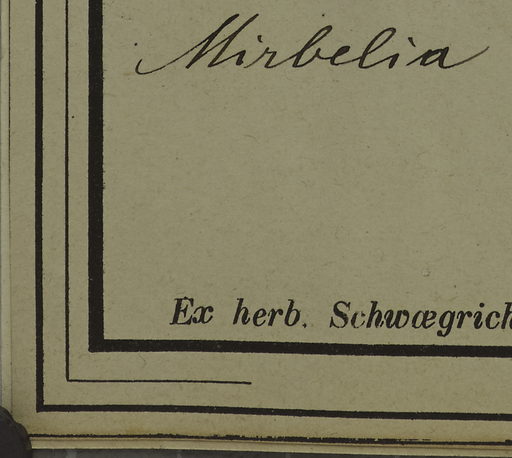 Mirbelia
Ex herb. Schwægrich